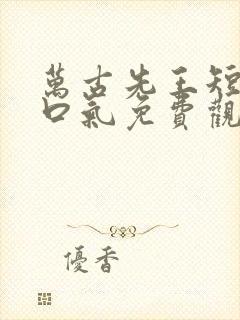 萬古先王短
口氣免費觀
優香